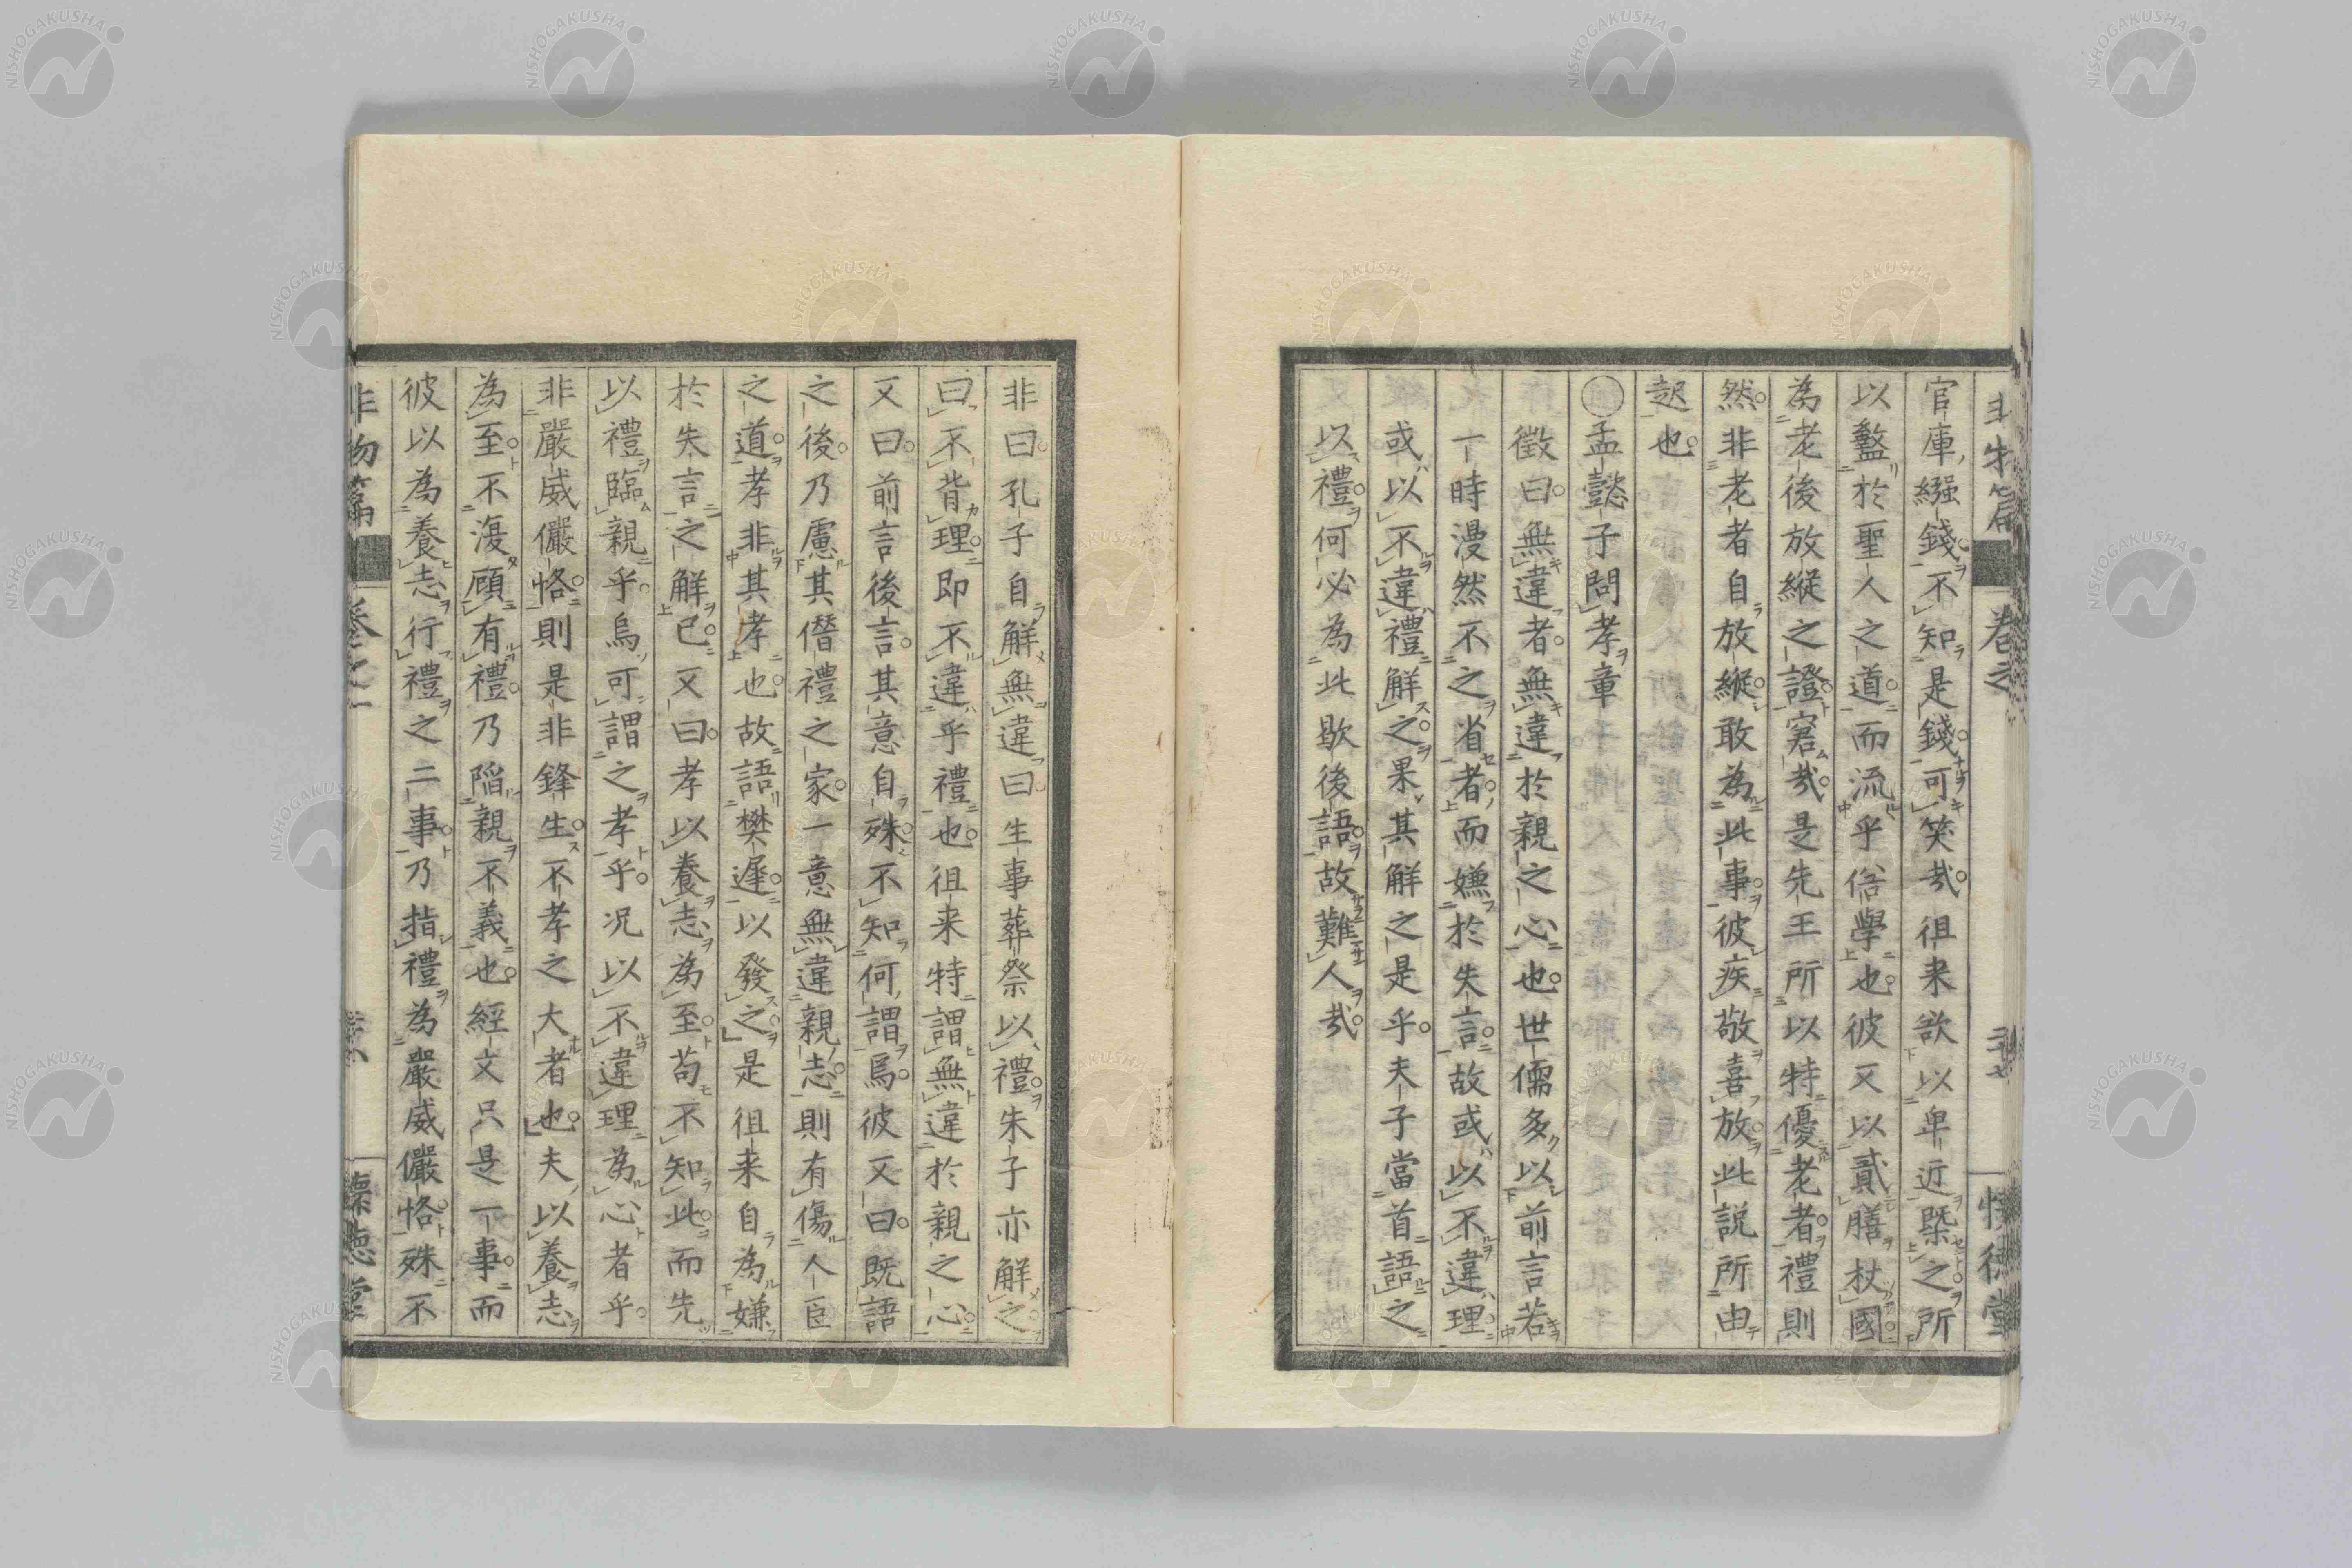 官庫繦錢不知是錢可笑㢤徂来欲以卑近槩之所
以盭於聖人之道而流乎俗學也彼又以貳膳杖國
為老後放縦之證窘㢤是先王所以特優老者禮則
然非老者自放縦敢為此事彼疾敬喜放此説所由
起也
○孟懿子問孝章
徵曰無違者無違於親之心也世儒多以前言若
一時漫然不之省者而嫌於失言故或以不違理
或以不違禮解之果其解之是乎夫子當首語之
以禮何必為此歇後語故難人㢤
非曰孔子自解無違曰生事葬祭以禮朱子亦解之
曰不背理即不違乎禮也徂来特謂無違於親之心
又曰前言後言其意自殊不知何謂焉彼又曰既語
之後乃慮其僭禮之家一意無違親志則有傷人臣
之道孝非其孝也故語樊遲以發之是徂来自為嫌
於失言之解已又曰孝以養志為至苟不知此而先
以禮臨親乎烏可謂之孝乎况以不違理為心者乎
非嚴威儼恪則是非鋒生不孝之大者也夫以養志
為至不復顧有禮乃陷親不義也經文只是一事而
彼以為養志行禮之二事乃指禮為嚴威儼恪殊不
非物篇
懷德堂